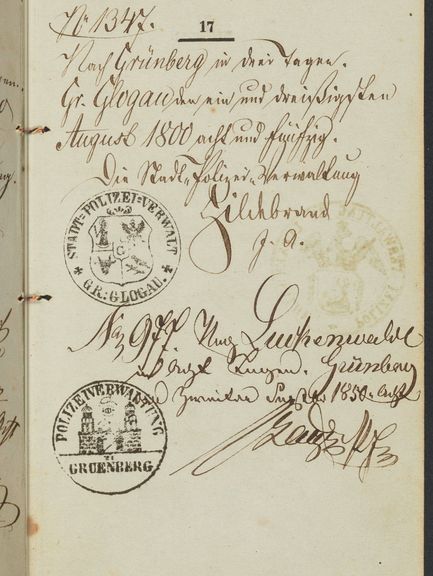 No 1347.
17
Nach Grünberg in drei Tagen.
Gr. Glogau den ein und dreißigsten
August 1800 acht und fünfzig.
Die Stadt-Polizei-Verwaltung
Hildebrand
STADT=POLIZEI=VERWALT
G
* GR: GLOGAU. *
No 977 Luckenwalde
Grünberg
den zweiten 1850 acht
POLIZEI VERWALTUNG
ZU
GRUENBERG